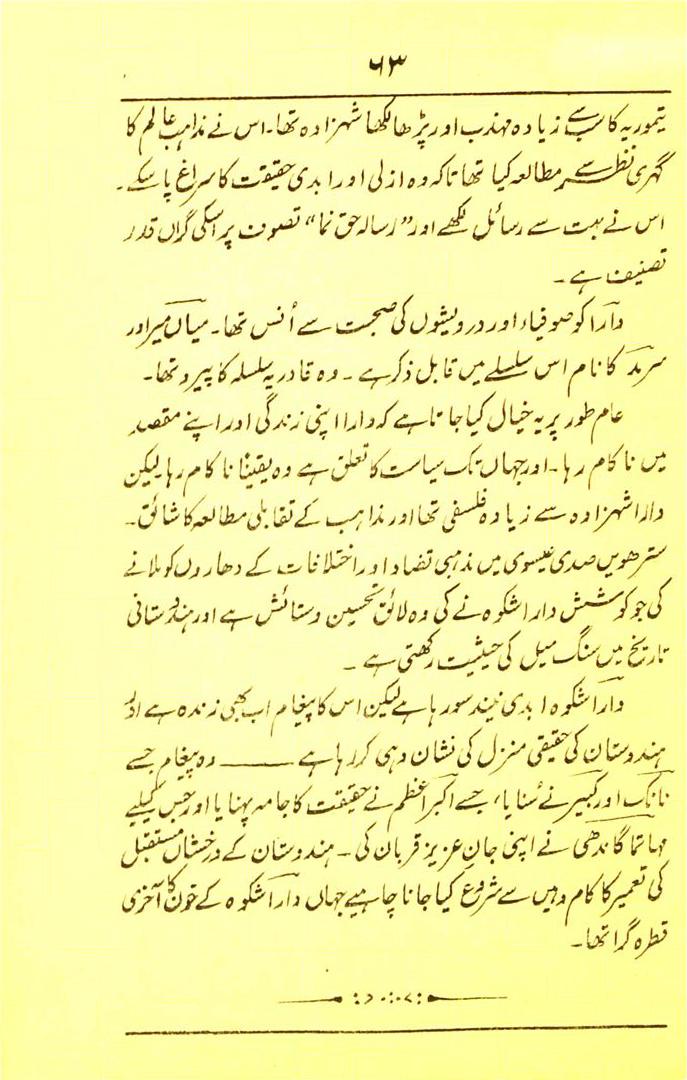 ۶۳
تیموریہ کا سب سے زیادہ مہذب اور پڑھا لکھا شہزادہ تھا۔ اس نے مذاہب عالم کا
گہری نظر سے مطالعہ کیا تھا تاکہ وہ ازلی اور ابدی حقیقت کا سراغ پا سکے۔
اس نے بہت سے رسائل لکھے اور ”رسالہ حق نما“ تصوف پر اسکی گراں قدر
تصنیف ہے۔
دارا کو صوفیاء اور درویشوں کی صحبت سے اُنس تھا۔ میاں میر اور
سرمد کا نام اس سلسلے میں قابل ذکر ہے۔ وہ قادریہ سلسلہ کا پیرو تھا۔
عام طور پر یہ خیال کیا جاتا ہے کہ دارا اپنی زندگی اور اپنے مقصد
میں ناکام رہا۔ اور جہاں تک سیاست کا تعلق ہے وہ یقیناً ناکام رہا لیکن
دارا شہزادہ سے زیادہ فلسفی تھا اور مذاہب کے تقابلی مطالعہ کا شائق۔
سترھویں صدی عیسوی میں مذہبی تضاد اور اختلافات کے دھاروں کو ملانے
کی جو کوشش دارا شکوہ نے کی وہ لائق تحسین و ستائش ہے اور ہندوستانی
تاریخ میں سنگ میل کی حیثیت رکھتی ہے۔
دارا شکوہ ابدی نیند سو رہا ہے لیکن اس کا پیغام اب بھی زندہ ہے اور
ہندوستان کی حقیقی منزل کی نشان دہی کر رہا ہے ——— وہ پیغام جسے
نانک اور کبیر نے سُنایا، جسے اکبر اعظم نے حقیقت کا جامہ پہنایا اور جس کیلیے
مہاتما گاندھی نے اپنی جانِ عزیز قربان کی۔ ہندوستان کے درخشاں مستقبل
کی تعمیر کا کام وہیں سے شروع کیا جانا چاہیے جہاں دارا شکوہ کے خون کا آخری
قطرہ گرا تھا۔